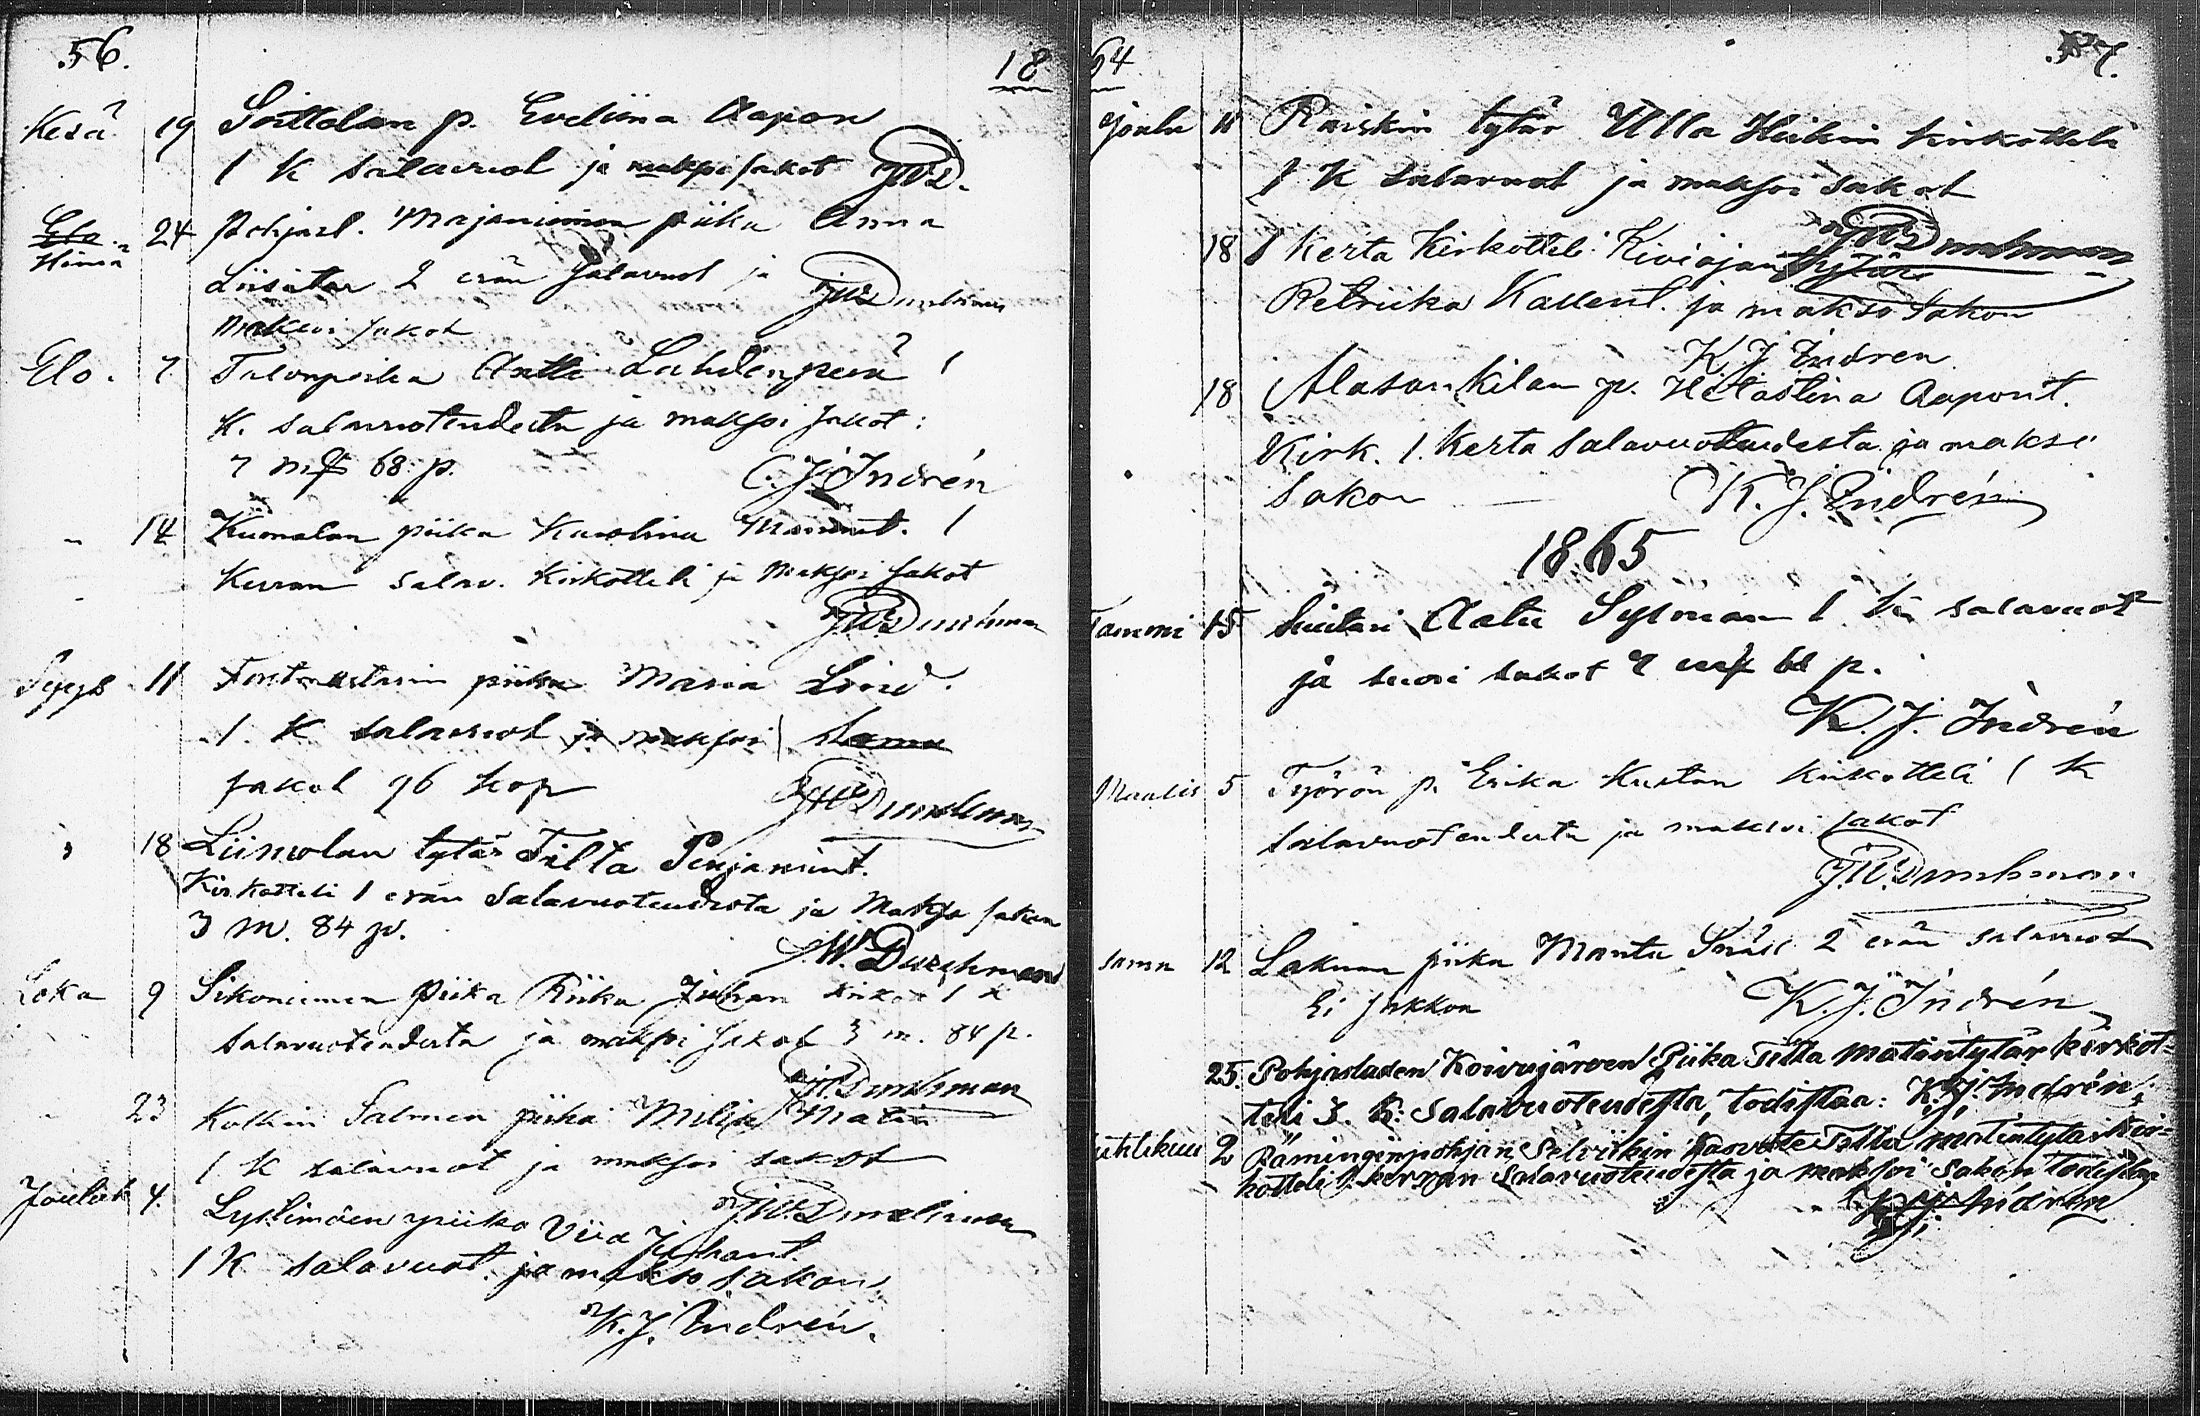 56.
18
Kesä 19 Soittolan p. Eveliina Aapon
1 K salavuot ja maksoi sakot JWD.
Elo
Heinä 24 Pohjasl. Majaniemen piika Anna
Liisatar 2 erän salavuot ja JWDurchman
maksoi sakot
Elo. 7 Talonpoika Antti Lahdenperä 1
K. salavuoteudesta ja maksoi sakot:
7 mk 68 p. C. J. Indrén
" 14 Kuonalan piika Karolina 1
Kerran salav. Kirkotteli ja maksoi sakot
JWDurchman
Syys 11 piika Maria Lind.
1. K salavuot ja maksoi
sakot 96 kop JWDurchman
" 18 Liinolan tytär Tilta Penjamint.
Kirkotteli 1 erän Salavuoteudesta ja Makso sakon
3 M. 84 p.
J.W. Durchman
Loka 9 Sikoniemen Piika Riika Juhan kirkot 1 K
salavuoteudesta ja maksoi sakot 3 m. 84 p.
JWDurchman
" 23 Kotkin Salmen piika Milja Matin
1 K salavuot ja maksoi sakot
JWDurchman
Jouluk 4. piika Viia Juhant.
1 K salavuot. ja makso sakon.
K. J. Indrén.
64
57.
Joulu 11 Raiskin tytär Ulla Heikin kirkotteli
1 K salavuot ja maksoi sakot
JWDurchman
18 1 Kerta Kirkotteli Kiviojan tytär
Retriika Kallent. ja makso sakon
K J Indren
18 Alasankilan p. Hetastina Aapont.
Kirk. 1. Kerta salavuoteudesta ja maksi
sakon K. J. Indrén
1865
Tammi 15 Aatu Sysman 1 k salavuot
ja suori sakot 7 mk 68 p.
K. J. Indrén
Maalis 5 Työrön p. Erika Kustan kirkotteli 1 K
salavuoteudesta ja maksoi sakot
J.W.Durchman
sama 12 Lakuan piika Mantu 2 erän salavuot
Ei sakkoa K. J. Indrén
25. Pohjasladen Koivujärven Piika Tilta Matintytär kirkot=
teli 3. K: Salavuoteudesta, todistaa: K. J. Indrén.
Huhtikuu 2 Rämingin pohjan Selviikin Kasvate Tilta Matintytär kir=
kotteli 1. kerran Salavuoteudesta ja maksoi sakon todistaa
K. J. Indrén